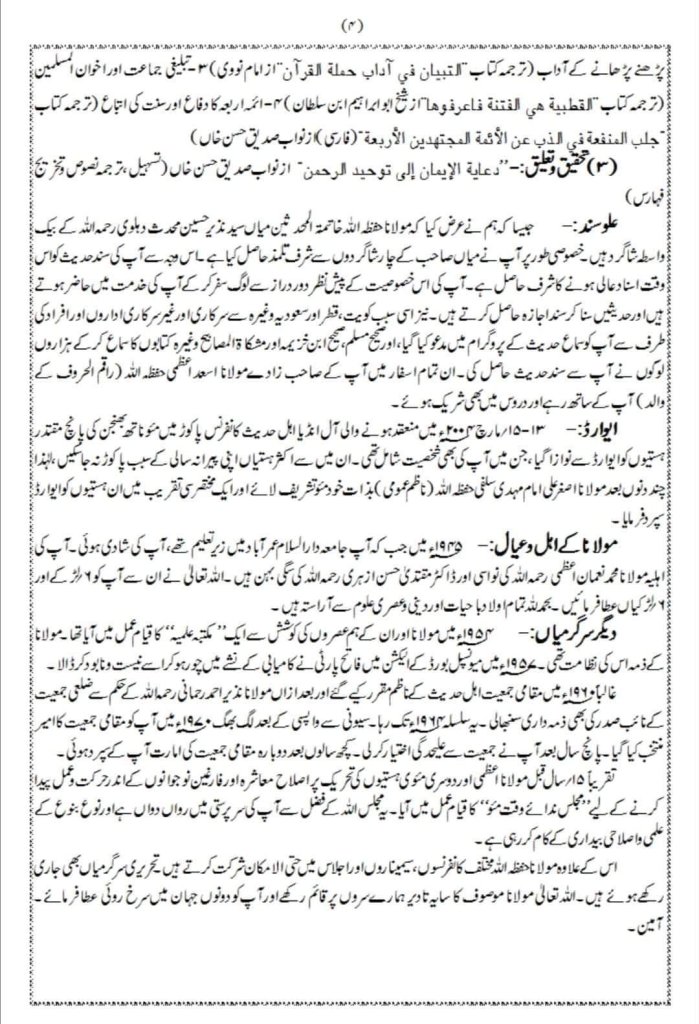 (۴)
پڑھنے پڑھانے کے آداب (ترجمہ کتاب "التبیان في آداب حملة القرآن" از امام نووی) ۳- تبلیغی جماعت اور اخوان المسلمین
(ترجمہ کتاب "القطبیة هي الفتنة فاعرفوها" از شیخ ابو ابراہیم ابن سلطان) ۴- ائمہ اربعہ کا دفاع اور سنت کی اتباع (ترجمہ کتاب
"جلب المنفعة في الذب عن الأئمة المجتهدین الأربعة" (فارسی) از نواب صدیق حسن خاں)
(۳) تحقیق وتعلیق:- "دعایة الإیمان إلى توحید الرحمن" از نواب صدیق حسن خاں (تسہیل، ترجمہ نصوص وتخریج
فہارس)
علو سند:- جیسا کہ ہم نے عرض کیا کہ مولانا حفظہ اللہ خاتمۃ المحدثین میاں سید نذیر حسین محدث دہلوی رحمہ اللہ کے بیک
واسطہ شاگرد ہیں۔ خصوصی طور پر آپ نے میاں صاحب کے چار شاگردوں سے شرف تلمذ حاصل کیا ہے۔ اس وجہ سے آپ کی سند حدیث کو اس
وقت اسناد عالی ہونے کا شرف حاصل ہے۔ آپ کی اس خصوصیت کے پیش نظر دور دراز سے لوگ سفر کر کے آپ کی خدمت میں حاضر ہوتے
ہیں اور حدیثیں سنا کر سند اجازہ حاصل کرتے ہیں۔ نیز اسی سبب کویت، قطر اور سعودیہ وغیرہ سے سرکاری اور غیر سرکاری اداروں اور افراد کی
طرف سے آپ کو سماع حدیث کے پروگرام میں مدعو کیا گیا، اور صحیح مسلم، صحیح ابن خزیمہ اور مشکاۃ المصابیح وغیرہ کتابوں کا سماع کر کے ہزاروں
لوگوں نے آپ سے سند حدیث حاصل کی۔ ان تمام اسفار میں آپ کے صاحب زادے مولانا اسعد اعظمی حفظہ اللہ (راقم الحروف کے
والد) آپ کے ساتھ رہے اور دروس میں بھی شریک ہوئے۔
ایوارڈ:- ۱۳-۱۵/مارچ ۲۰۰۴ء میں منعقد ہونے والی آل انڈیا اہل حدیث کانفرنس پاکوڑ میں مئوناتھ بھنجن کی پانچ مقتدر
ہستیوں کو ایوارڈ سے نوازا گیا، جن میں آپ کی بھی شخصیت شامل تھی۔ ان میں سے اکثر ہستیاں اپنی پیرانہ سالی کے سبب پاکوڑ نہ جاسکیں، لہٰذا
چند دنوں بعد مولانا اصغر علی امام مہدی سلفی حفظہ اللہ (ناظم عمومی) بذات خود مئو تشریف لائے اور ایک مختصر سی تقریب میں ان ہستیوں کو ایوارڈ
سپرد فرمایا۔
مولانا کے اہل وعیال:- ۱۹۴۵ء میں جب کہ آپ جامعہ دارالسلام عمر آباد میں زیر تعلیم تھے، آپ کی شادی ہوئی۔ آپ کی
اہلیہ مولانا محمد نعمان اعظمی رحمہ اللہ کی نواسی اور ڈاکٹر مقتدیٰ حسن ازہری رحمہ اللہ کی سگی بہن ہیں۔ اللہ تعالیٰ نے ان سے آپ کو ۶/لڑکے اور
۶/لڑکیاں عطا فرمائیں۔ بحمد للہ تمام اولاد باحیات اور دینی وعصری علوم سے آراستہ ہیں۔
دیگر سرگرمیاں:- ۱۹۵۴ء میں مولانا اور ان کے ہم عصروں کی کوشش سے ایک "مکتبہ علمیہ" کا قیام عمل میں آیا تھا۔ مولانا
کے ذمہ اس کی نظامت تھی۔ ۱۹۵۷ء میں میونسپل بورڈ کے الیکشن میں فاتح پارٹی نے کامیابی کے نشے میں چور ہو کر اسے نیست ونابود کر ڈالا۔
غالباً ۱۹۶۰ء میں مقامی جمعیت اہل حدیث کے ناظم مقرر کیے گئے اور بعد ازاں مولانا نذیر احمد رحمانی رحمہ اللہ کے حکم سے ضلعی جمعیت
کے نائب صدر کی بھی ذمہ داری سنبھالی۔ یہ سلسلہ ۱۹۶۴ء تک رہا۔ سیونی سے واپسی کے بعد لگ بھگ ۱۹۷۰ء میں آپ کو مقامی جمعیت کا امیر
منتخب کیا گیا۔ پانچ سال بعد آپ نے جمعیت سے علیحدگی اختیار کر لی۔ کچھ سالوں بعد دوبارہ مقامی جمعیت کی امارت آپ کے سپرد ہوئی۔
تقریباً ۱۵/سال قبل مولانا اعظمی اور دوسری مئوی ہستیوں کی تحریک پر اصلاح معاشرہ اور فارغین نوجوانوں کے اندر حرکت وعمل پیدا
کرنے کے لیے "مجلس ندائے وقت مئو" کا قیام عمل میں آیا۔ یہ مجلس اللہ کے فضل سے آپ کی سرپرستی میں رواں دواں ہے اور نوع بنوع کے
علمی واصلاحی بیداری کے کام کر رہی ہے۔
اس کے علاوہ مولانا حفظہ اللہ مختلف کانفرنسوں، سیمیناروں اور اجلاس میں حتی الامکان شرکت کرتے ہیں۔ تحریری سرگرمیاں بھی جاری
رکھے ہوئے ہیں۔ اللہ تعالیٰ مولانا موصوف کا سایہ تا دیر ہمارے سروں پر قائم رکھے اور آپ کو دونوں جہان میں سرخ روئی عطا فرمائے۔
آمین۔